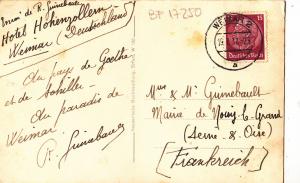 Envoi de R. Guinebault
Hotel Hohenzollern
Weimar (Deutschland)
Au pays de Goethe
et de Schiller
Au paradis de
Weimar
R. Guinebault
BF 17250
WEIMAR
15
Deutsches Reich
a
Mr & Me Guinebault
Mairie de Noisy-le-Grand
(Seine & Oise)
(Frankreich)